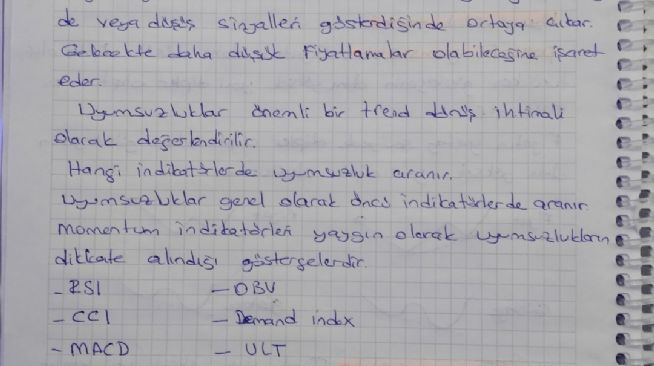 de veya düşüş sinyalleri gösterdiğinde ortaya çıkar.
Gelecekte daha düşük fiyatlamalar olabileceğine işaret
eder.
Uyumsuzluklar önemli bir trend dönüş ihtimali
olarak değerlendirilir.
Hangi indikatörlerde uyumsuzluk aranır.
Uyumsuzluklar genel olarak öncü indikatörlerde aranır
momentum indikatörleri yaygın olarak uyumsuzlukların
dikkate alındığı göstergelerdir.
- RSI — OBV
- CCI — Demand index
- MACD — ULT